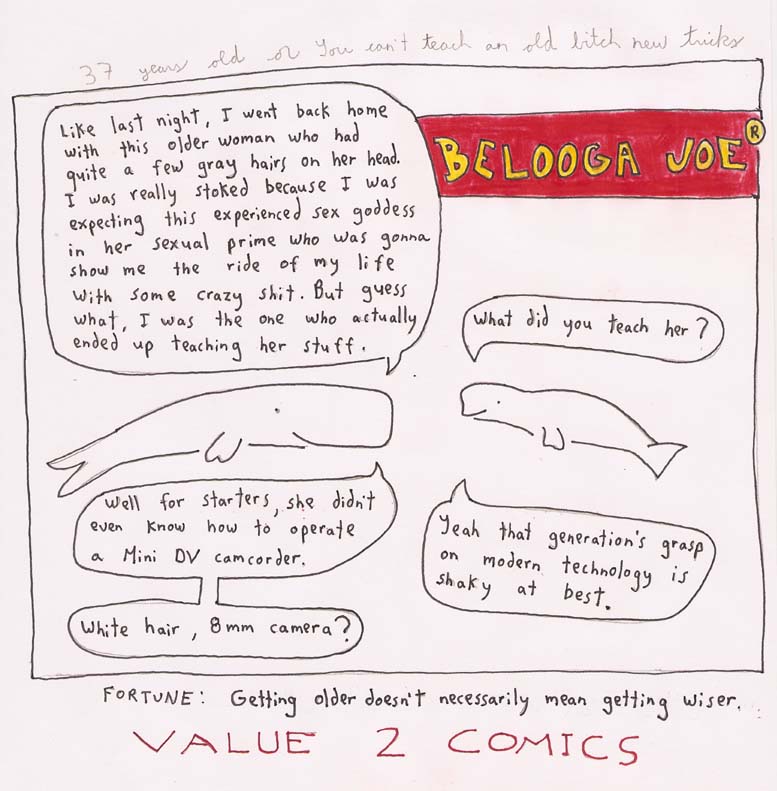 37 years old or You can't teach an old bitch new tricks
Like last night, I went back home
with this older woman who had
quite a few gray hairs on her head.
I was really stoked because I was
expecting this experienced sex goddess
in her sexual prime who was gonna
show me the ride of my life
with some crazy shit. But guess
what, I was the one who actually
ended up teaching her stuff.
BELOOGA JOE®
What did you teach her?
Well for starters, she didn't
even know how to operate
a Mini DV camcorder.
White hair, 8mm camera?
Yeah that generation's grasp
on modern technology is
shaky at best.
FORTUNE: Getting older doesn't necessarily mean getting wiser.
VALUE 2 COMICS